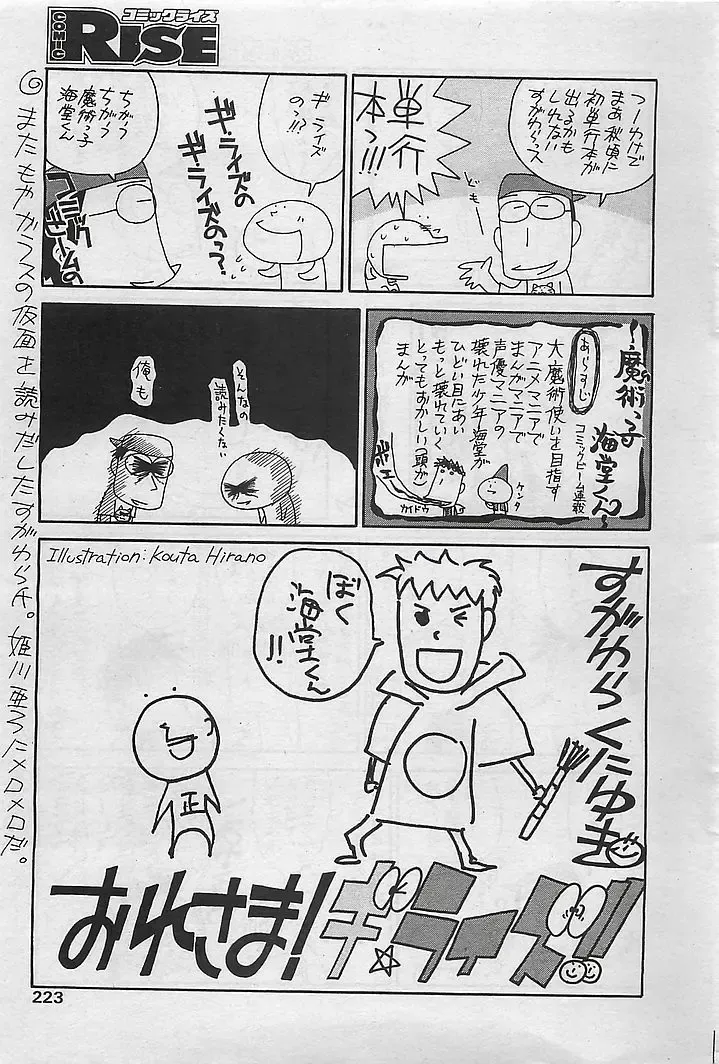 コミックライズ
COMIC RISE
つーわけで
まあ秋頃に
初単行本が
出るかも
しれない
すがわらっス
ども
単行
本っ!!!
ギ・ライズ
のっ!!?
ギ・ライズの
ギ・ライズのっ?
ちがう
ちがう
魔術っ子
海堂くん
コミック
ビームの
～魔術っ子
海堂くん～
コミックビーム連載
あらすじ
大魔術使いを目指す
アニメマニアで
まんがマニアで
声優マニアの
壊れた少年海堂が
ひどい目にあい
もっと壊れていく
とってもおかしい(頭が)
まんが
ケンタ
カイドウ
そんなの
読みたくない
俺も
Illustration: Kouta Hirano
すがわらくにゆき
ぼく
海堂くん
!!
正
おれさま!ギ・ライズ!!
またもやガラスの仮面を読みだしたすがわら氏。姫川亜弓にメロメロだ。
223